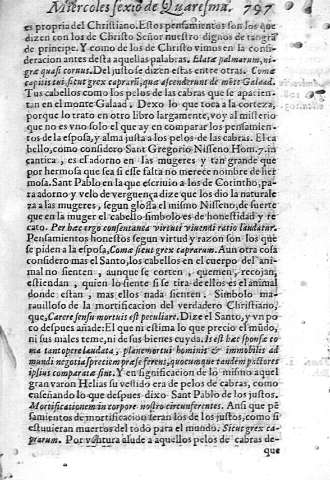 Miercoles sexto de Quaresma. 797
es propria del Christiano. Estos pensamientos son los que
dizen con los de Christo Señor nuestro dignos de sangre
de principe. Y como de los de Christo vimos en la consi-
deracion antes desta aquellas palabras. Elatæ palmarum, ni-
græ quasi corvus. Del justo se dizen estas entre otras. Comæ
capitis tui, sicut grex caprarũ, quæ ascenderunt de môte Galaad.
Tus cabellos como los pelos de las cabras que se apacien-
tan en el monte Galaad. Dexo lo que toca a la corteza,
porque lo trato en otro libro largamente, voy al misterio
que no es vno solo el que ay en comparar los pensamien-
tos de la esposa, y alma justa a los pelos de las cabras. El ca
bello, como considero Sant Gregorio Nisseno Hom. 7. in
cantica, es el adorno en las mugeres y tan grande que
por hermosa que sea si esse falta no merece nombre de her
mosa. Sant Pablo en la que escriuio a los de Corintho, pa-
ra adorno y velo de verguença dize que los dio la natural e
za a las mugeres, segun glossa el mismo Nisseno, de suerte
que en la muger el cabello simbolo es de honestidad y re
cato. Per hæc ergo consentanea virtuti viventi ratio laudatur.
Pensamientos honestos segun virtud y razon son los que
se piden a la esposa, Comæ sicut grex caprarum. Aun otra cosa
considero mas el Santo, los cabellos en el cuerpo del ani-
mal no sienten, aunque se corten, quemen, recojan,
estiendan, quien lo siente si se tira de ellos es el animal
donde estan, mas ellos nada sienten. Simbolo ma-
rauilloso de la mortificacion del verdadero Christiano,
que, Carere sensu mortuis est peculiare. Dize el Santo, y vn po
co despues añade: El que ni estima lo que precio el mũdo,
ni sus males teme, ni de sus bienes cuyda. Is est hæc sponsæ co
ma tantopere laudata, planè mortui hominis & immobilis ad
mundi negotia speciem præ se ferens, quocumque tandem pactorum
ipsius comparatæ sint. Y en significacion de lo mismo aquel
gran varon Helias su vestido era de pelos de cabras, como
enseñando lo que despues dixo Sant Pablo de los justos.
Mortificationem in corpore nostro circunferentes. Ansi que pẽ-
samientos de mortificacion seran los de los justos, como si
estuuieran muertos del todo para el mundo. Sicut grex ca-
prarum. Por ventura alude a aquellos pelos de cabras de-
que